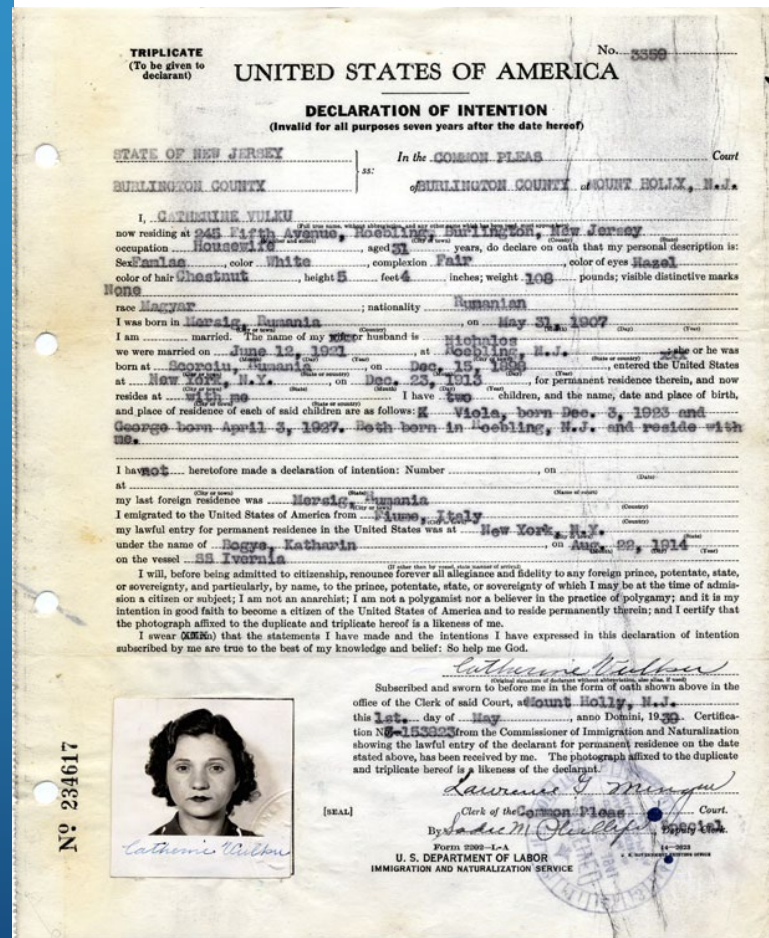 TRIPLICATE
(To be given to
declarant)
No. 3359
UNITED STATES OF AMERICA
DECLARATION OF INTENTION
(Invalid for all purposes seven years after the date hereof)
STATE OF NEW JERSEY
BURLINGTON COUNTY
ss:
In the COMMON PLEAS Court
of BURLINGTON COUNTY at MOUNT HOLLY, N.J.
I, CATHERINE VULKU
now residing at 245 Fifth Avenue, Roebling, Burlington, New Jersey
occupation Housewife, aged 31 years, do declare on oath that my personal description is:
Sex Famlae, color White, complexion Fair, color of eyes Hazel
color of hair Chestnut, height 5 feet 4 inches; weight 108 pounds; visible distinctive marks
None
race Magyar; nationality Rumanian
I was born in Mersig, Rumania, on May 31, 1907
I am married. The name of my wife or husband is Michalos
we were married on June 12, 1921, at Roebling, N.J.; she or he was
born at Scorciu, Rumania, on Dec. 15, 1898, entered the United States
at New York, N.Y., on Dec. 23, 1913, for permanent residence therein, and now
resides at with me I have two children, and the name, date and place of birth,
and place of residence of each of said children are as follows: Viola, born Dec. 3, 1923 and
George born April 3, 1927. Both born in Roebling, N.J. and reside with
me.
I have not heretofore made a declaration of intention: Number, on
(Date)
at
(City or town) (State) (Name of court)
my last foreign residence was Mersig, Rumania
(City or town) (Country)
I emigrated to the United States of America from Fiume, Italy
(Country)
my lawful entry for permanent residence in the United States was at New York, N.Y.
(State)
under the name of Bogye, Katharin, on Aug. 22, 1914
on the vessel SS Ivernia
(If other than by vessel, state manner of arrival)
I will, before being admitted to citizenship, renounce forever all allegiance and fidelity to any foreign prince, potentate, state,
or sovereignty, and particularly, by name, to the prince, potentate, state, or sovereignty of which I may be at the time of admis-
sion a citizen or subject; I am not an anarchist; I am not a polygamist nor a believer in the practice of polygamy; and it is my
intention in good faith to become a citizen of the United States of America and to reside permanently therein; and I certify that
the photograph affixed to the duplicate and triplicate hereof is a likeness of me.
I swear that the statements I have made and the intentions I have expressed in this declaration of intention
subscribed by me are true to the best of my knowledge and belief: So help me God.
Catherine Vulku
(Original signature of declarant without abbreviation, also alias, if used)
Subscribed and sworn to before me in the form of oath shown above in the
office of the Clerk of said Court, at Mount Holly, N.J.
this 1st. day of May, anno Domini, 1939. Certifica-
tion No 2-153823 from the Commissioner of Immigration and Naturalization
showing the lawful entry of the declarant for permanent residence on the date
stated above, has been received by me. The photograph affixed to the duplicate
and triplicate hereof is a likeness of the declarant.
[SEAL]
Clerk of the Common Pleas Court.
By Sadie M. Phillips, Special Deputy Clerk.
Form 2202-L-A
14-2623
U. S. DEPARTMENT OF LABOR
IMMIGRATION AND NATURALIZATION SERVICE
U. S. GOVERNMENT PRINTING OFFICE
Catherine Vulku
No 234617